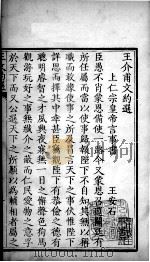 王介甫文約選
上仁宗皇帝言事書
王安石
臣愚不肖蒙恩備使一路今又蒙恩召還闕廷有
所任屬而當以使事歸報陛下不自知其無以稱
職而敢緣使事之所及冒言天下之事伏惟陛下
詳思而擇其中幸甚臣竊觀陛下有恭儉之德有
聰明睿智之才夙興夜寐無一日之懈聲色狗馬
觀游玩好之事無纖介之蔽而仁民愛物之意孚
於天下而又公選天下之所願以為輔相者屬